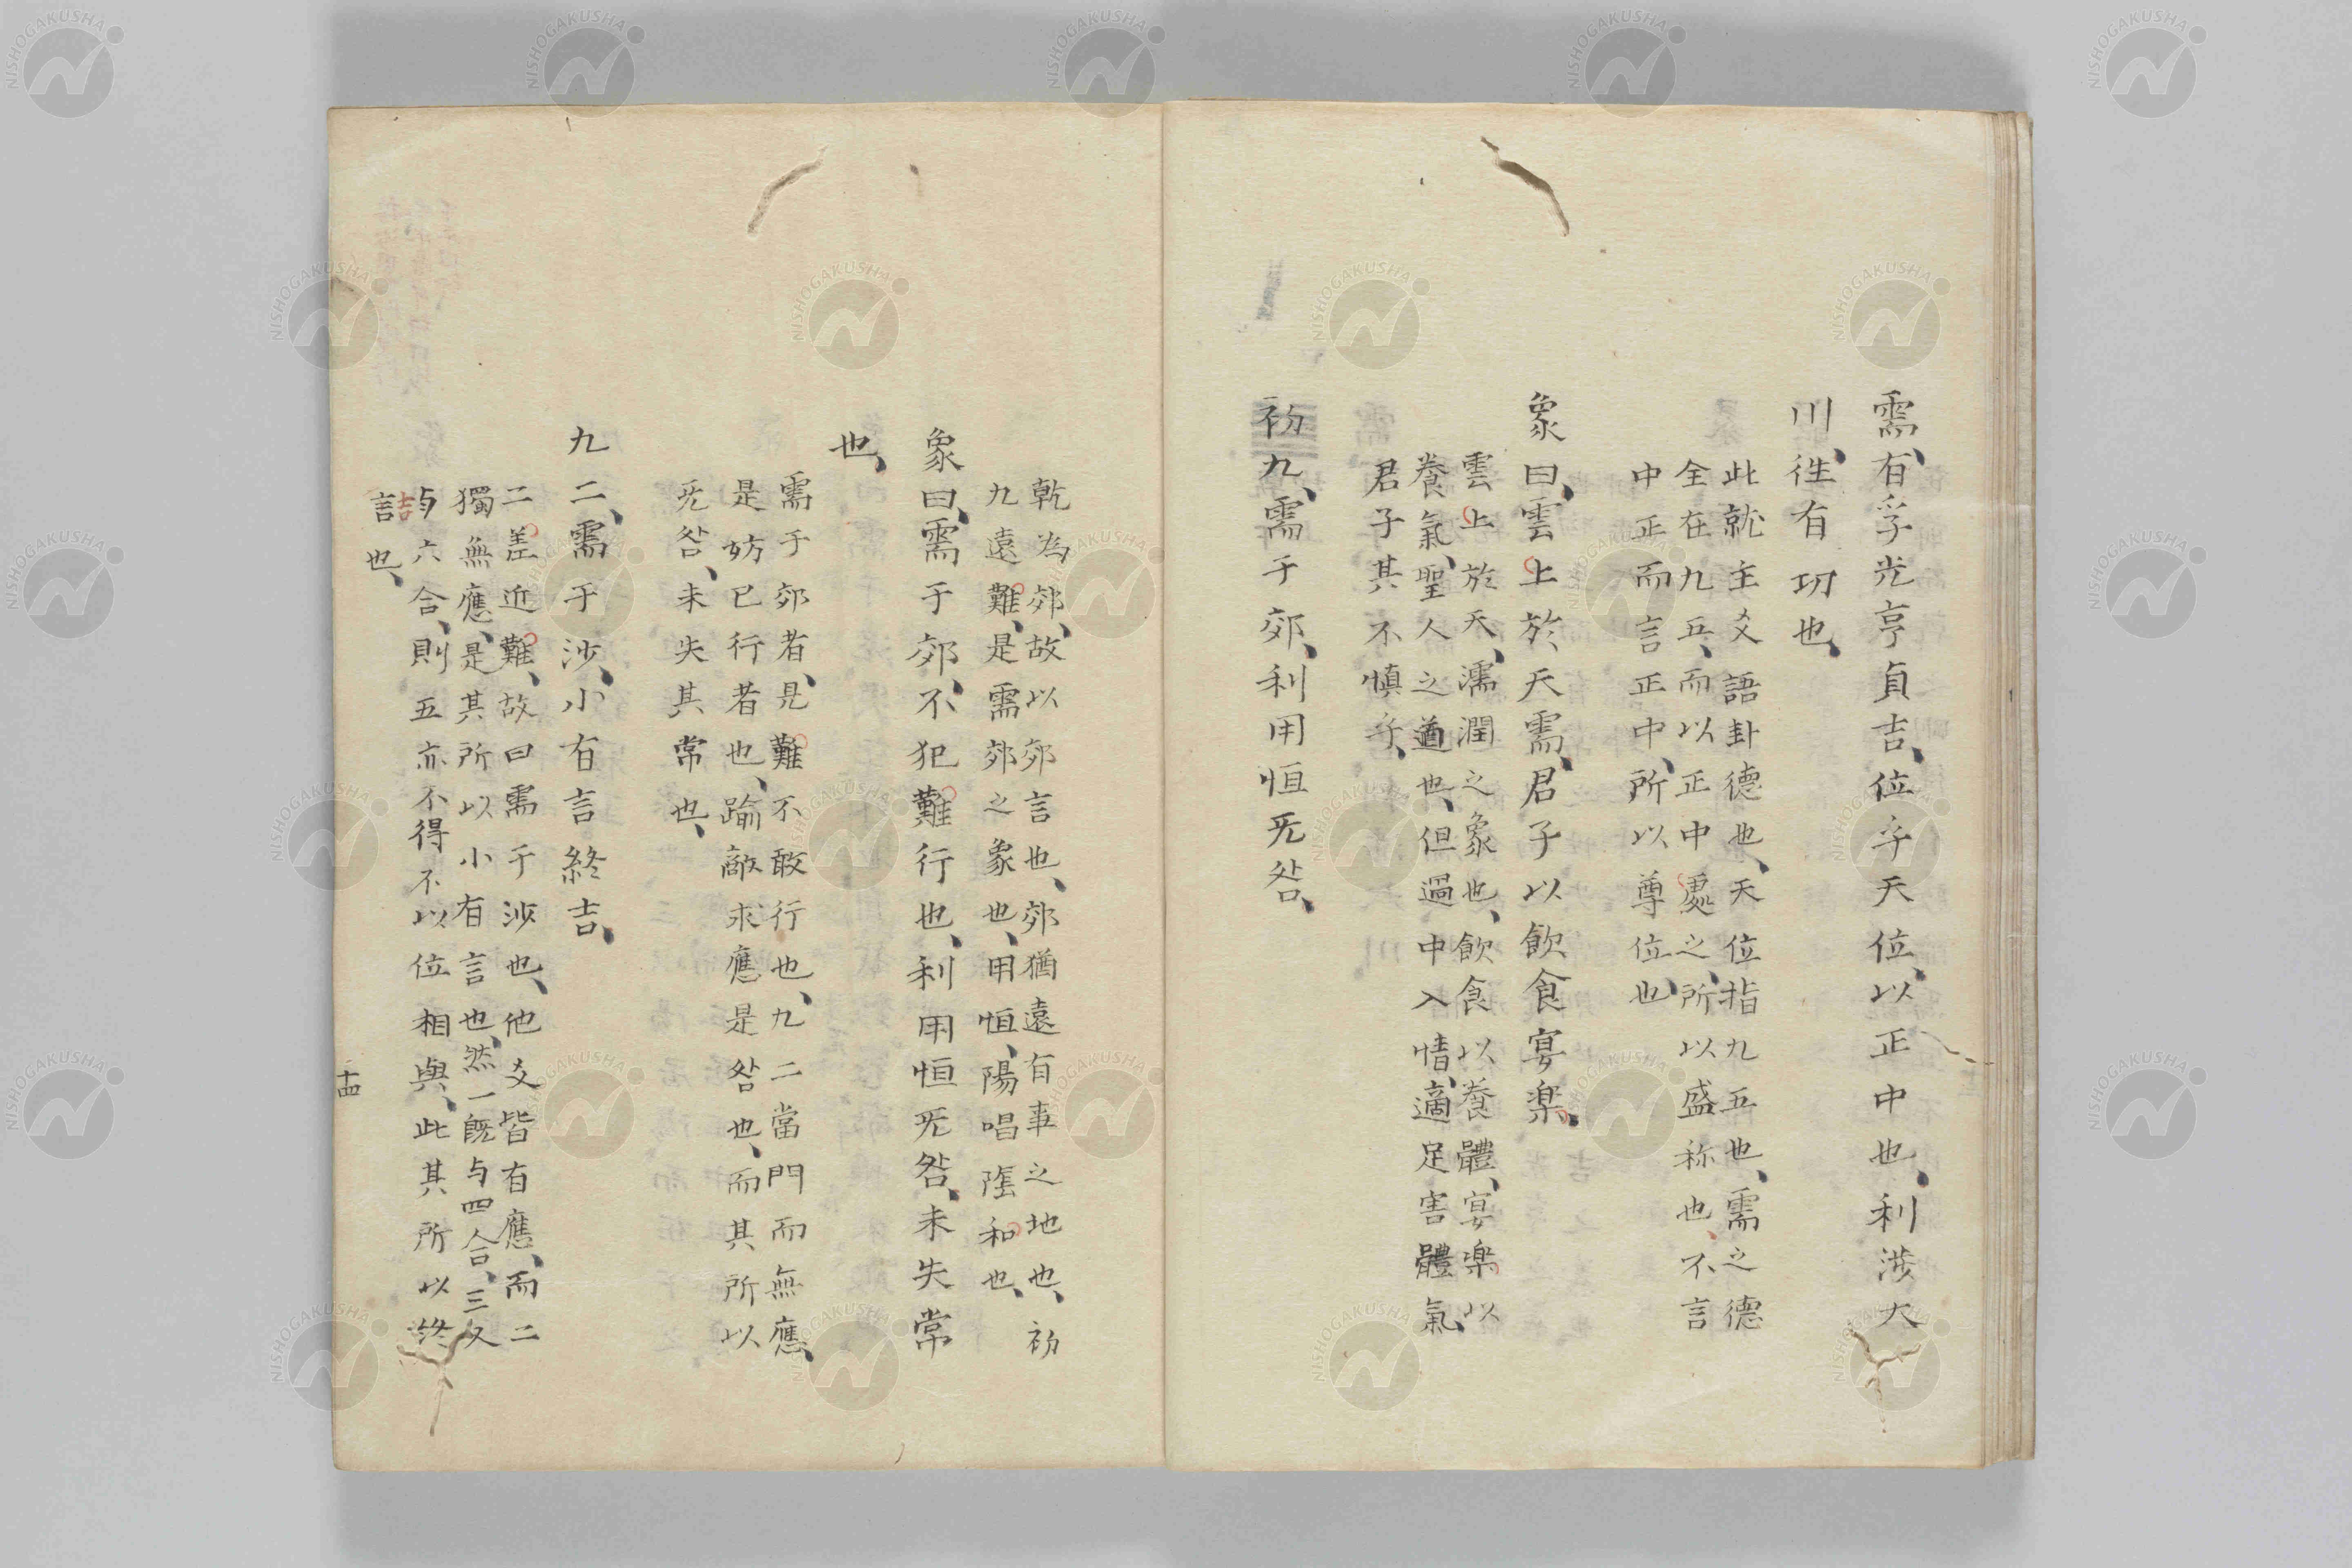 需、有孚光亨貞吉、位乎天位、以正中也、利涉大
川、徃有功也、
此就主爻語卦德也、天位指九五也、需之德
全在九五、而以正中處之、所以盛称也、不言
中正而言正中、所以尊位也
象曰、雲上於天需、君子以飲食宴楽、
雲上於天、濡潤之象也、飲食以養體、宴楽以
養氣、聖人之道也、但過中入情、適足害體氣、
君子其不慎乎、
初九、需于郊、利用恒无咎、
乾為郊、故以郊言也、郊猶遠有事之地也、初
九遠難、是需郊之象也、用恒、陽唱隂和也、
象曰、需于郊、不犯難行也、利用恒无咎、未失常
也、
需于郊者、見難不敢行也、九二當門而無應、
是妨已行者也、踰敵求應是咎也、而其所以
无咎、未失其常也、
九二、需于沙、小有言終吉、
二差近難、故曰需于沙也、他爻皆有應、而二
獨無應、是其所以小有言也、然一既与四合、三又
与六合、則五亦不得不以位相與、此其所以終
吉
言也、
十四
NISHOGAKUSHA